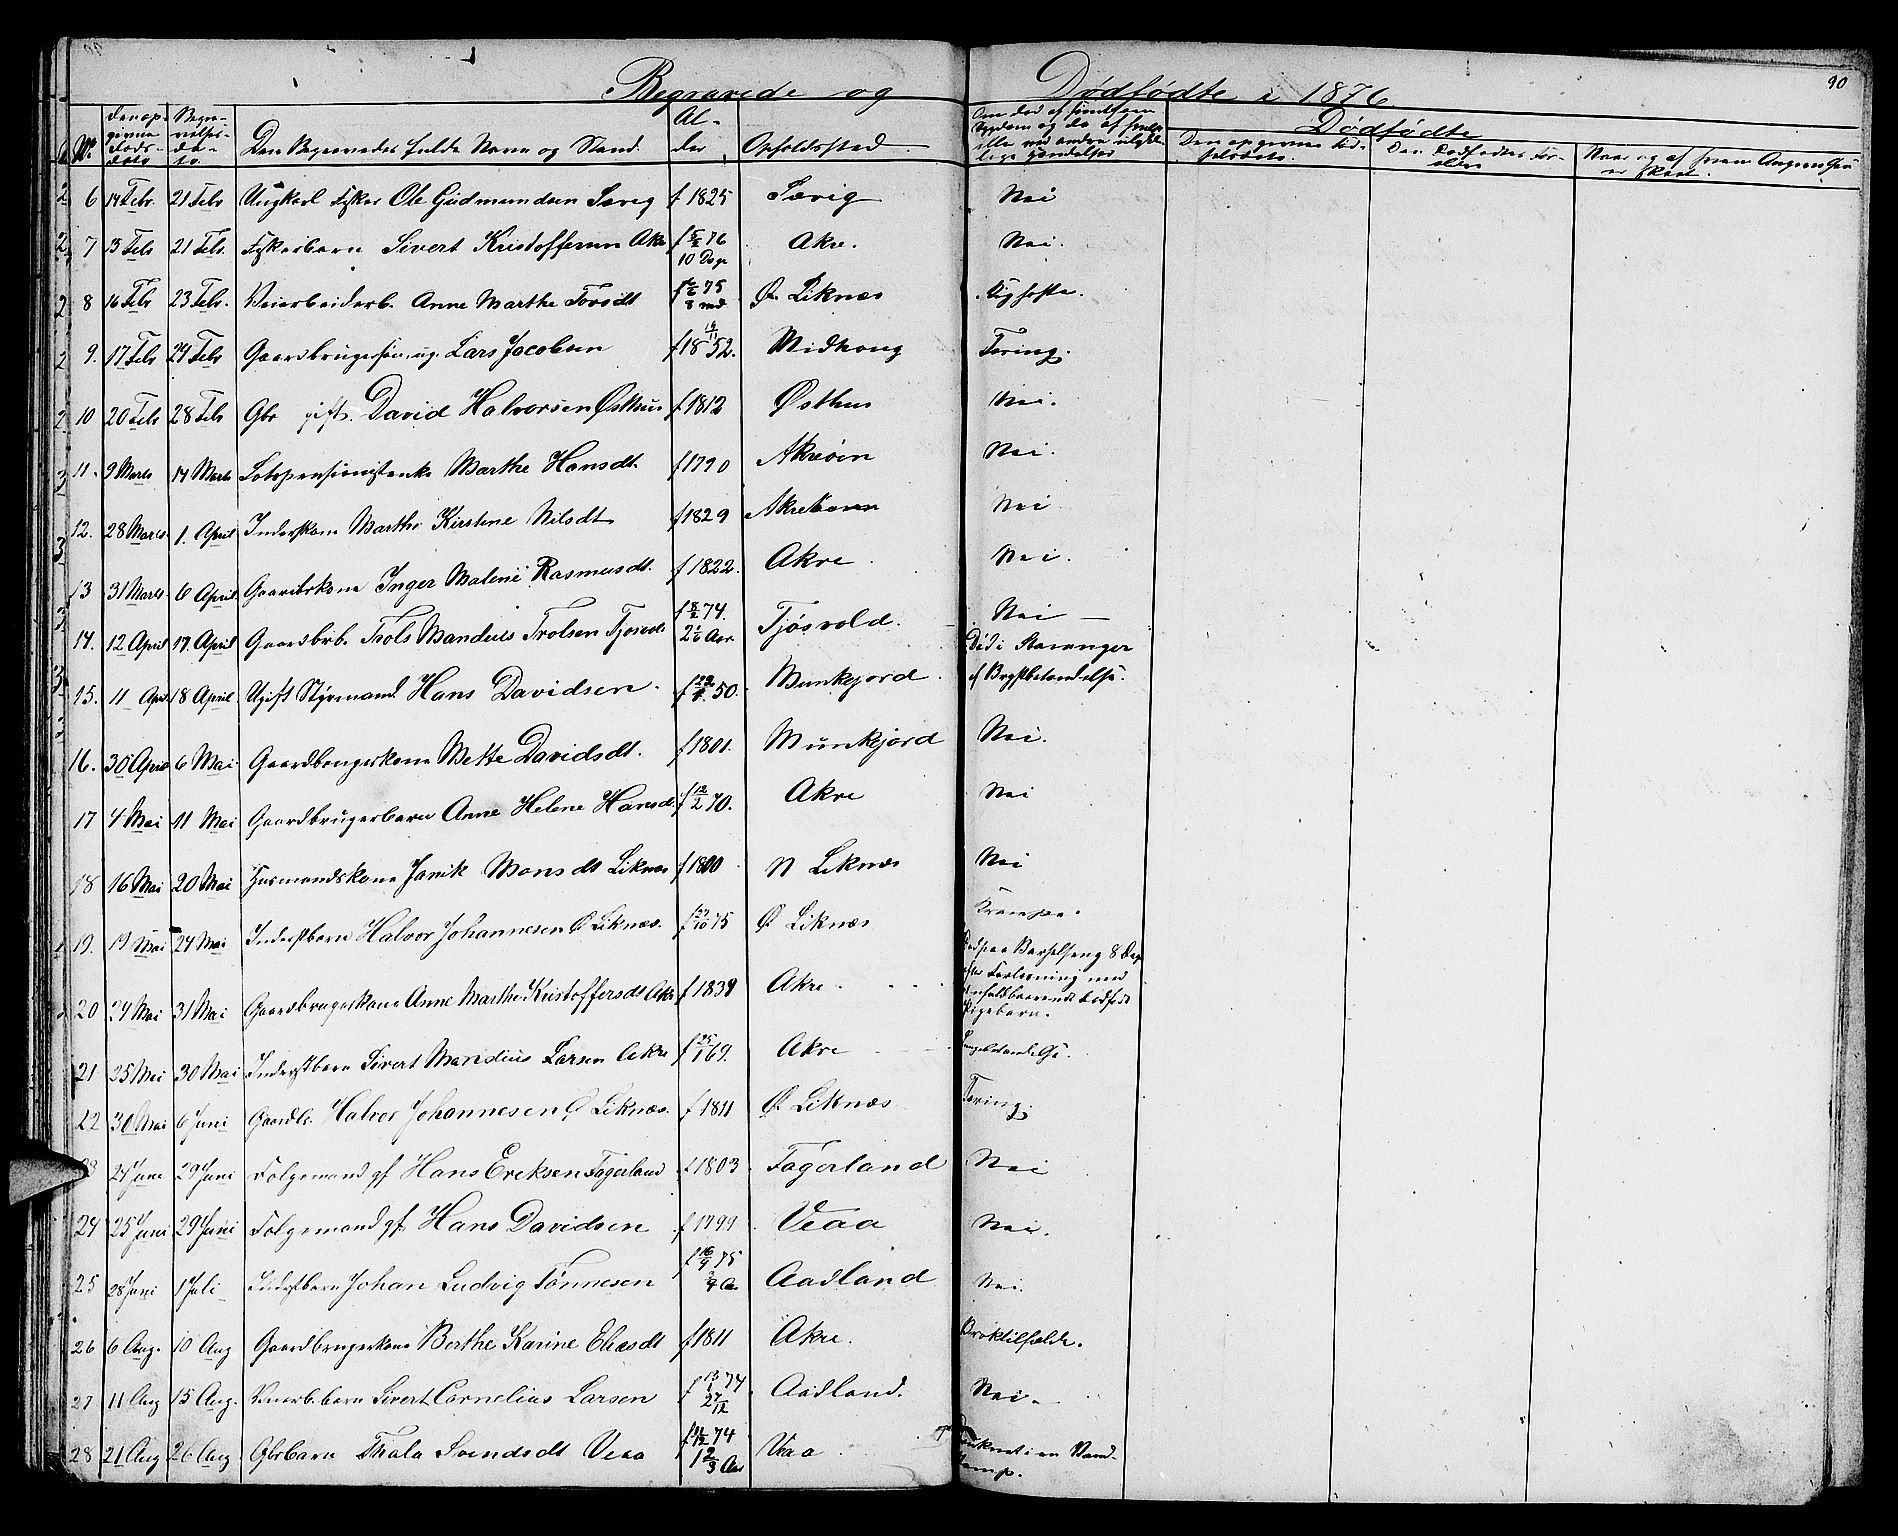 90
Begravede og Dødfødte i 1876
No. Den opgivne Dødsdato Begravelsesdato Den Begravedes fulde Navn og Stand. Alder Opholdsted Dødfødte
6 14 Febr. 21 Febr Ungkarl Fisker Ole Gudmundsen Sævig f 1825 Sævig Nei
7 13 Feb 21 Feb. Fiskerbarn Sivert Kristoffersen Akre f 5/2 76 10 Dage Akre. Nei.
8 16 Feb 23 Feb. Veiarbeiderb. Anne Marthe f 75 8 md Ø. Liknæs Kighoste.
9. 17 Feb 24 Feb Gaardbrugersøn, ug. Lars Jacobsen f 1852. Midhoug Tæring.
10 20 Feb 28 Feb Gbr gift. David Halvorsen Østhus f 1812 Østhus Nei.
11. 9 Marts 14 Marts Lodspensionistenke Marthe Hansdt. f 1790 Akreøen Nei.
12. 28 Marts 1. April Inderstkone Marthe Kirstine Nilsdt f 1829 Akrehavn Nei
13 31 Marts 6 April Gaardbrkone Inger Malene Rasmusdt. f 1822. Akre Nei.
14. 12 April 17 April Gaardbrb. Trols Mandius Trolsen f 8/2 74. 2 1/6 Aar Tjøsvold. Nei
15. 11 Apri 18 April Ugift Styrmand Hans Davidsen. f 50. Munkejord Død i Stavanger af Brystbetændelse.
16. 30 April 6 Mai Gaardbrugerkone Mette Davidsdt. f 1801. Munkejord Nei.
17 4 Mai 11 Mai Gaardbrugerbarn Anne Helene Hansd. f 12/2 70. Akre Nei
18 16 Mai 20 Mai Husmandskone Janik Monsdt Liknæs f 1800 N Liknæs Nei
19. 19 Mai 24 Mai Inderstbarn Halvor Johannesen Ø Liknæs. f 75 Ø Liknæs Krampe.
20 24 Mai 31 Mai Gaardbrugerkone Anne Marthe Kristoffersdt Akre f 1839 Akre. Død paa Barselseng 8 Dage efter Forløsning med Dødfødt Pigebarn.
21 25 Mai 30 Mai Inderstbarn Sivert Mandius Larsen Akre f 25/1 69. Akre Lungebetændelse.
22 30 Mai 6 Juni Gaardbr. Halvor Johannesen Ø Liknæs. f 1811 Ø Liknæs Tæring.
24 Juni 29 Juni Folgemand gf Hans Ereksen Fagerland f 1803 Fagerland Nei
24 25 Juni 29 Juni Folgemand gf. Hans Davidsen f 1799 Veaa Nei.
25 28 Juni 1 Juli Inderstbarn Johan Ludvig Tønnesen f 16/9 75 3/4 A. Aadland Nei.
26 6 Aug. 10 Aug Gaardbrugerkone Berthe Karine Eliasdt f 1811 Akre. Broktilfælde.
27 11 Aug 15 Aug. Veiarb.barn Sivert Cornelius Larsen f 74 2 7/12 Aadland. Nei.
28 21 Aug 26 Aug Gbrbarn Thala Svendsdt Veaa f 74 1 2/3 Aar Veaa Druknet i en Vanddamp.